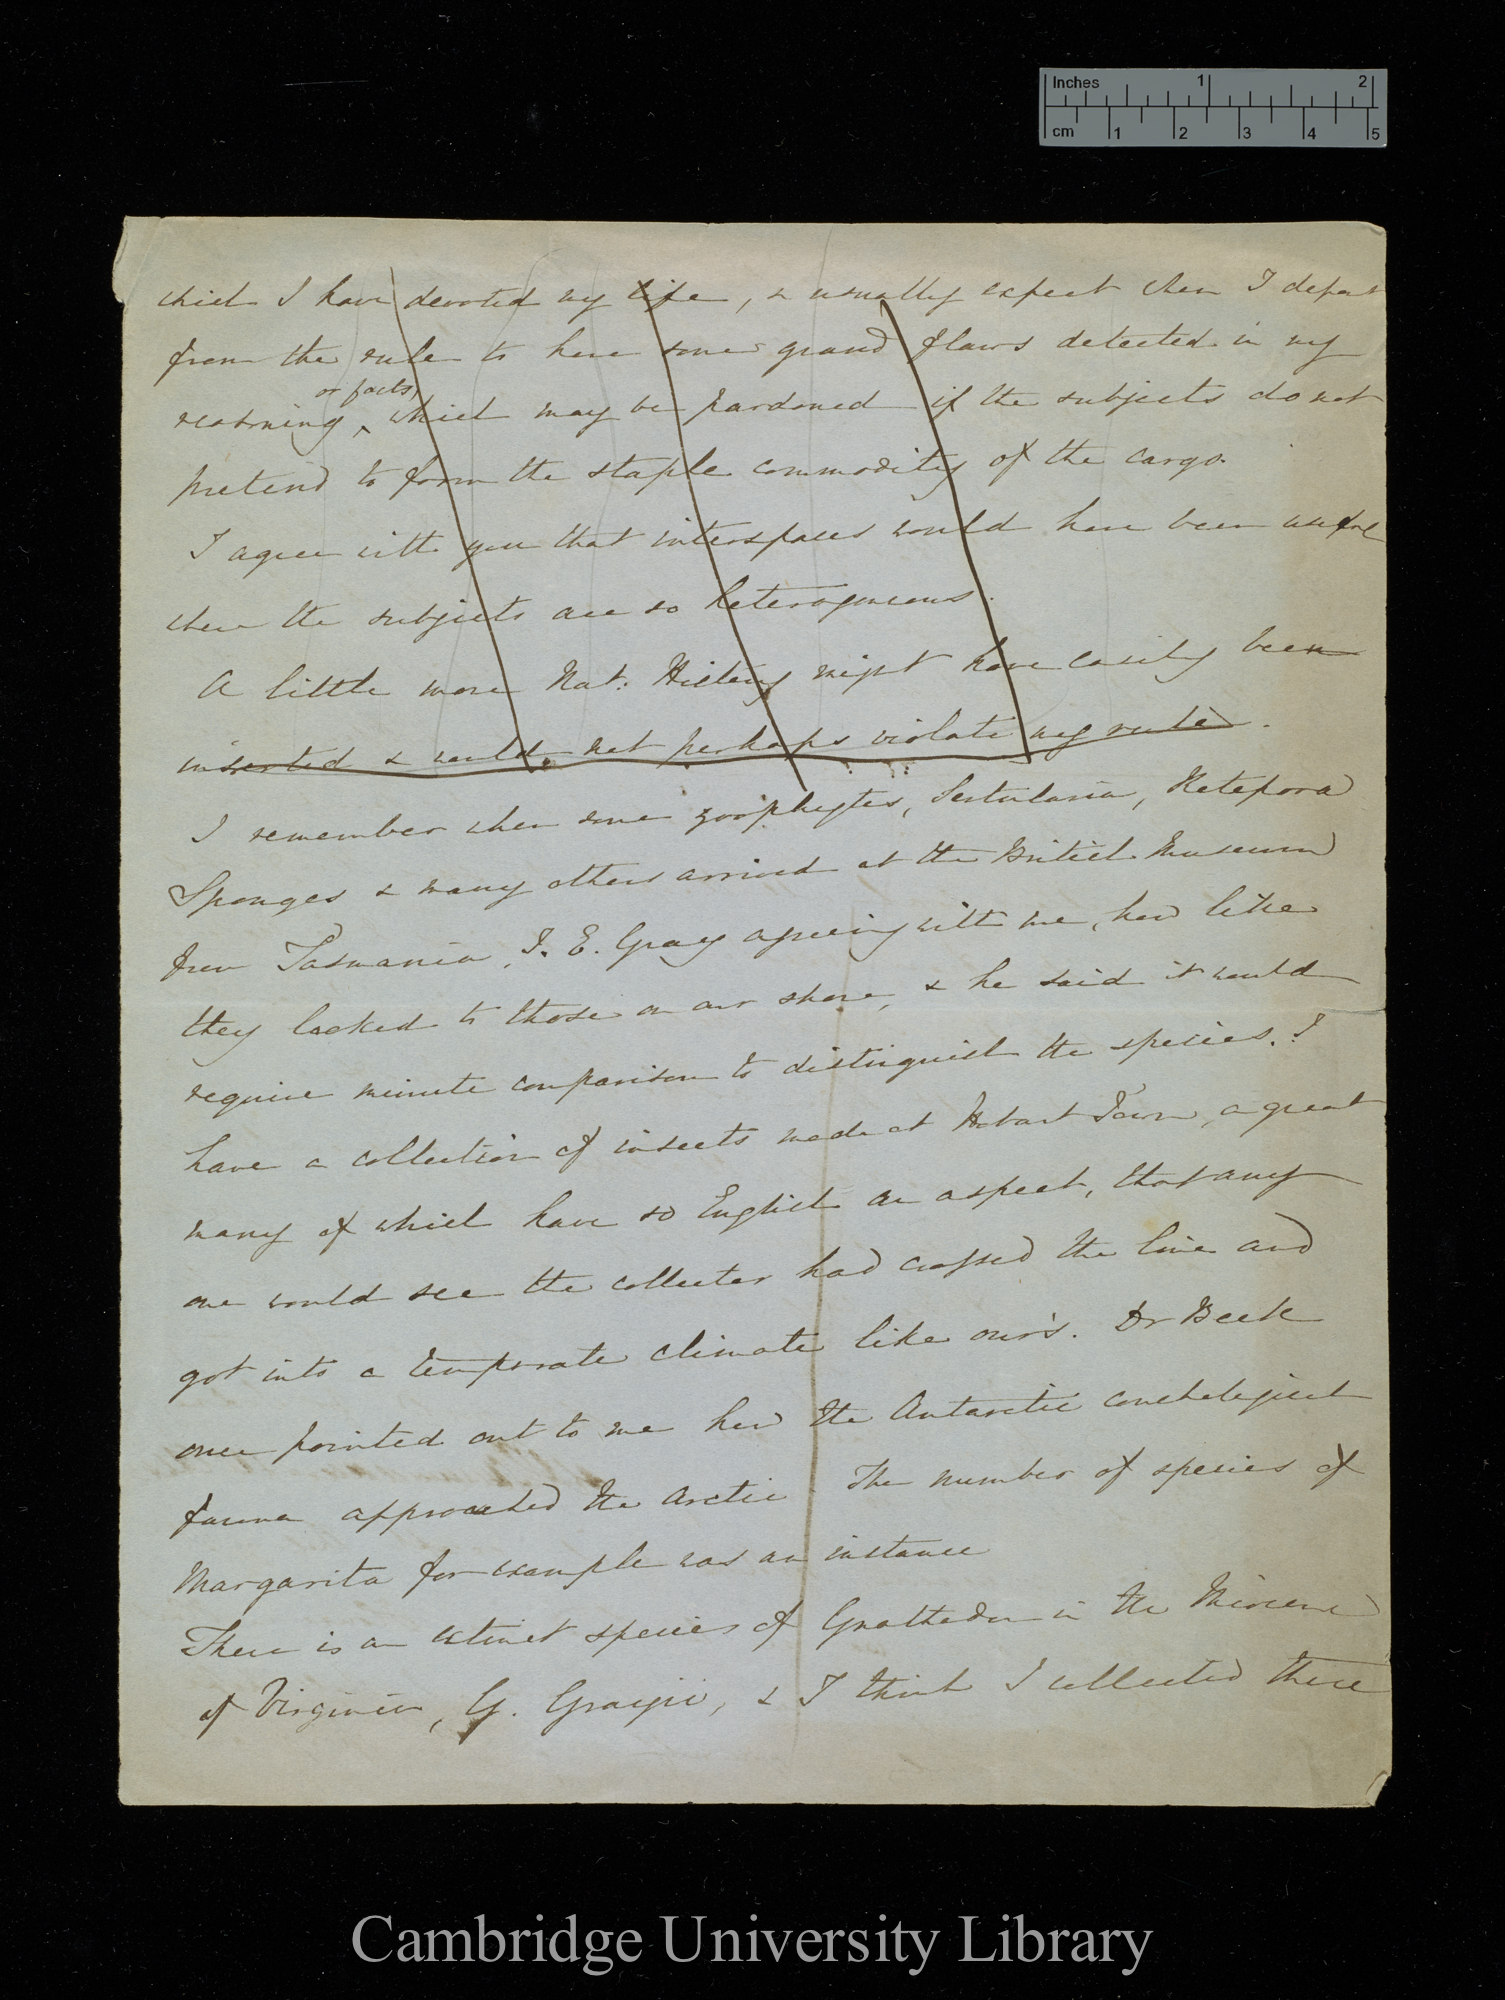 Inches 1 2
cm 1 2 3 4 5
which I have devoted my life, & usually expect when I depart
from the rule to have some grand flaws detected in my
or facts,
reasoning ^ which may be pardoned if the subjects do not
pretend to form the staple commodity of the cargo.
I agree with you that interspaces would have been useful
where the subjects are so heterogeneous.
A little more Nat: History might have easily been
inserted & would not perhaps violate my rule.
I remember when some zoophytes, Sertularia, Retepora
Sponges & many others arrived at the British Museum
from Tasmania, J. E. Gray agreeing with me, how like
they looked to those on our shore, & he said it would
require minute comparison to distinguish the species. I
have a collection of insects made at Hobart Town, a great
many of which have so English an aspect, that any
one would see the collector had crossed the line and
got into a temperate climate like our's. Dr Beck
once pointed out to me how the Antarctic conchological
fauna approached the Arctic The number of species of
Margarita for example was an instance
There is an extinct species of Gnathodon in the Miocene
of Virginia, G. Grayii, & I think I collected there
Cambridge University Library